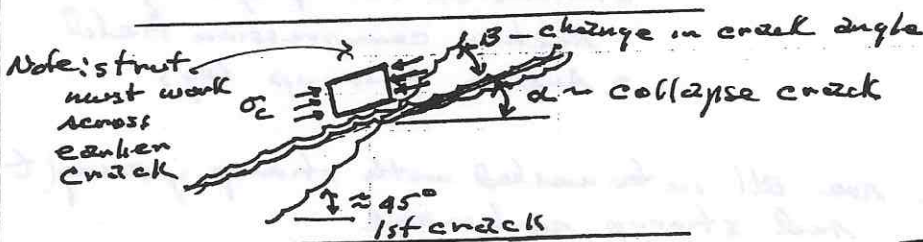 β – change in crack angle
Note: strut
must work
across
earlier
crack
σc
α ~ collapse crack
≈ 45°
1st crack